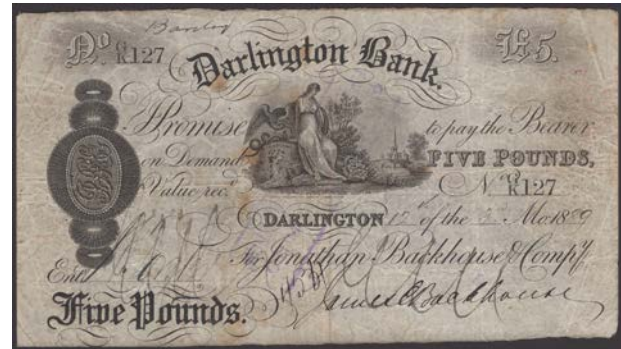 No G/K127 £5.
Darlington Bank.
I Promise to pay the Bearer
on Demand FIVE POUNDS,
Value recd. No. G/K127
DARLINGTON 12 of the Mo 1889
For Jonathan Backhouse & Compy.
Entd.
Five Pounds. James E Backhouse